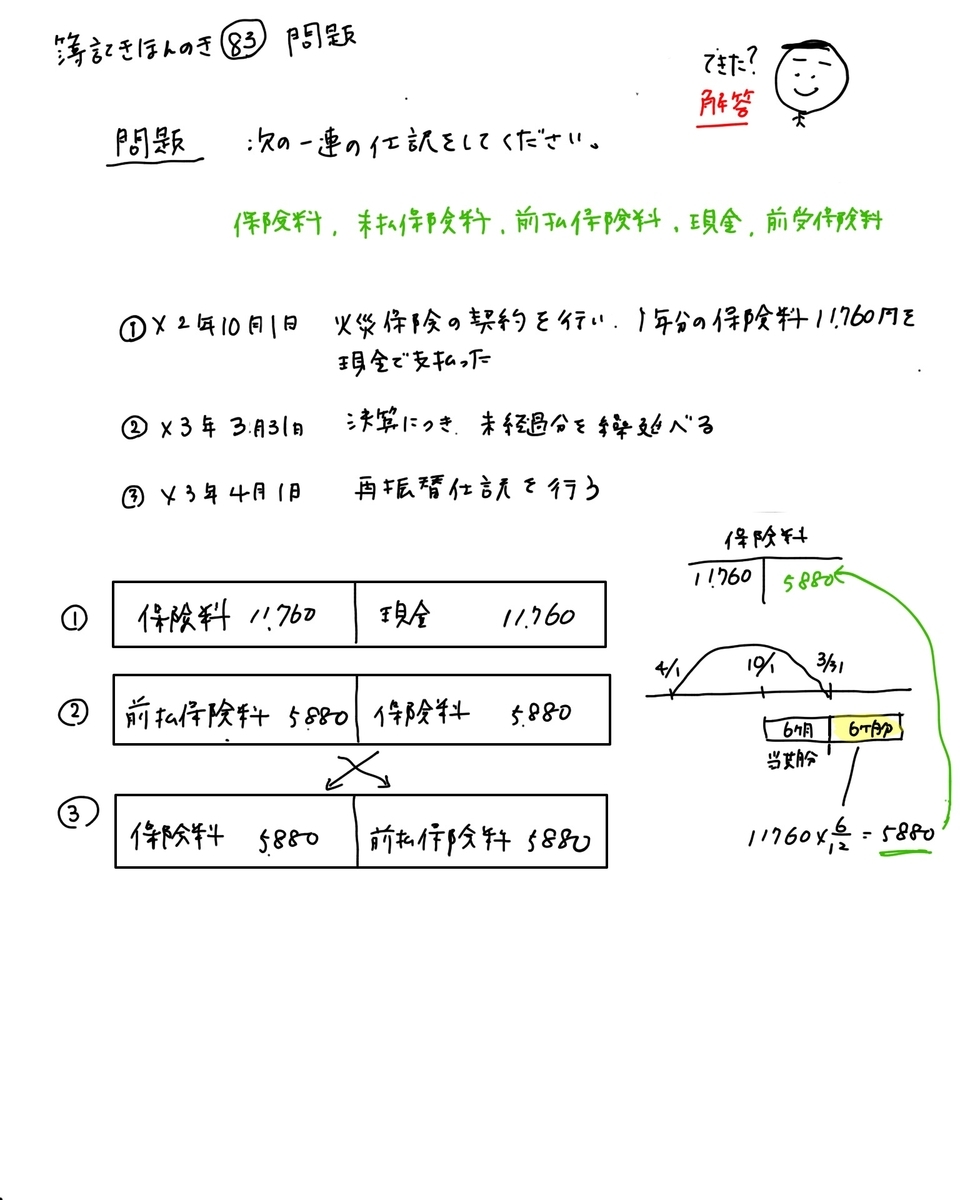 簿記きほんのき 83 問題
できた?
解答
問題 次の一連の仕訳をしてください。
保険料、未払保険料、前払保険料、現金、前受保険料
① ×2年10月1日 火災保険の契約を行い、1年分の保険料11,760円を
現金で支払った
② ×3年3月31日 決算につき、未経過分を繰延べる
③ ×3年4月1日 再振替仕訳を行う
保険料
11,760 5880
① 保険料 11,760 現金 11,760
4/1 10/1 3/31
② 前払保険料 5,880 保険料 5,880
6ヶ月 6ヶ月分
当期分
③ 保険料 5,880 前払保険料 5,880
11760 × 6/12 = 5880